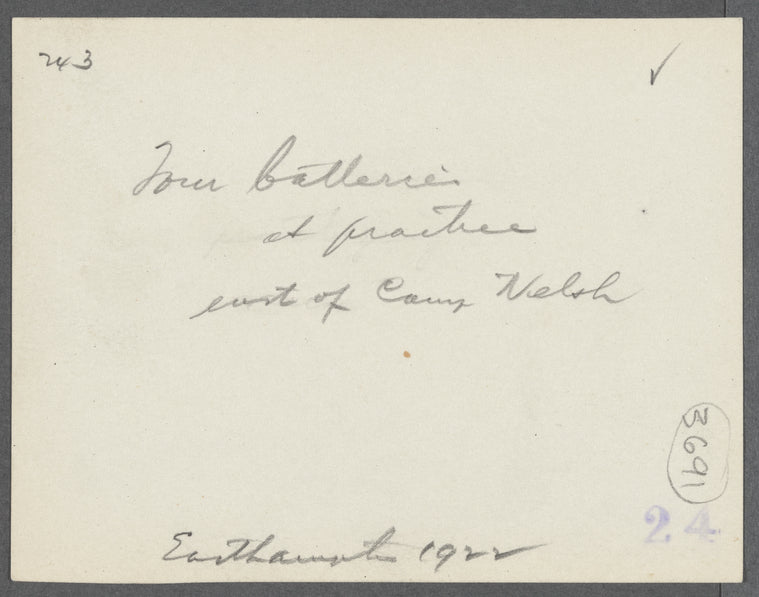 243
Four batteries
at practice
east of Camp Welsh
3691
24
Easthampton 1922